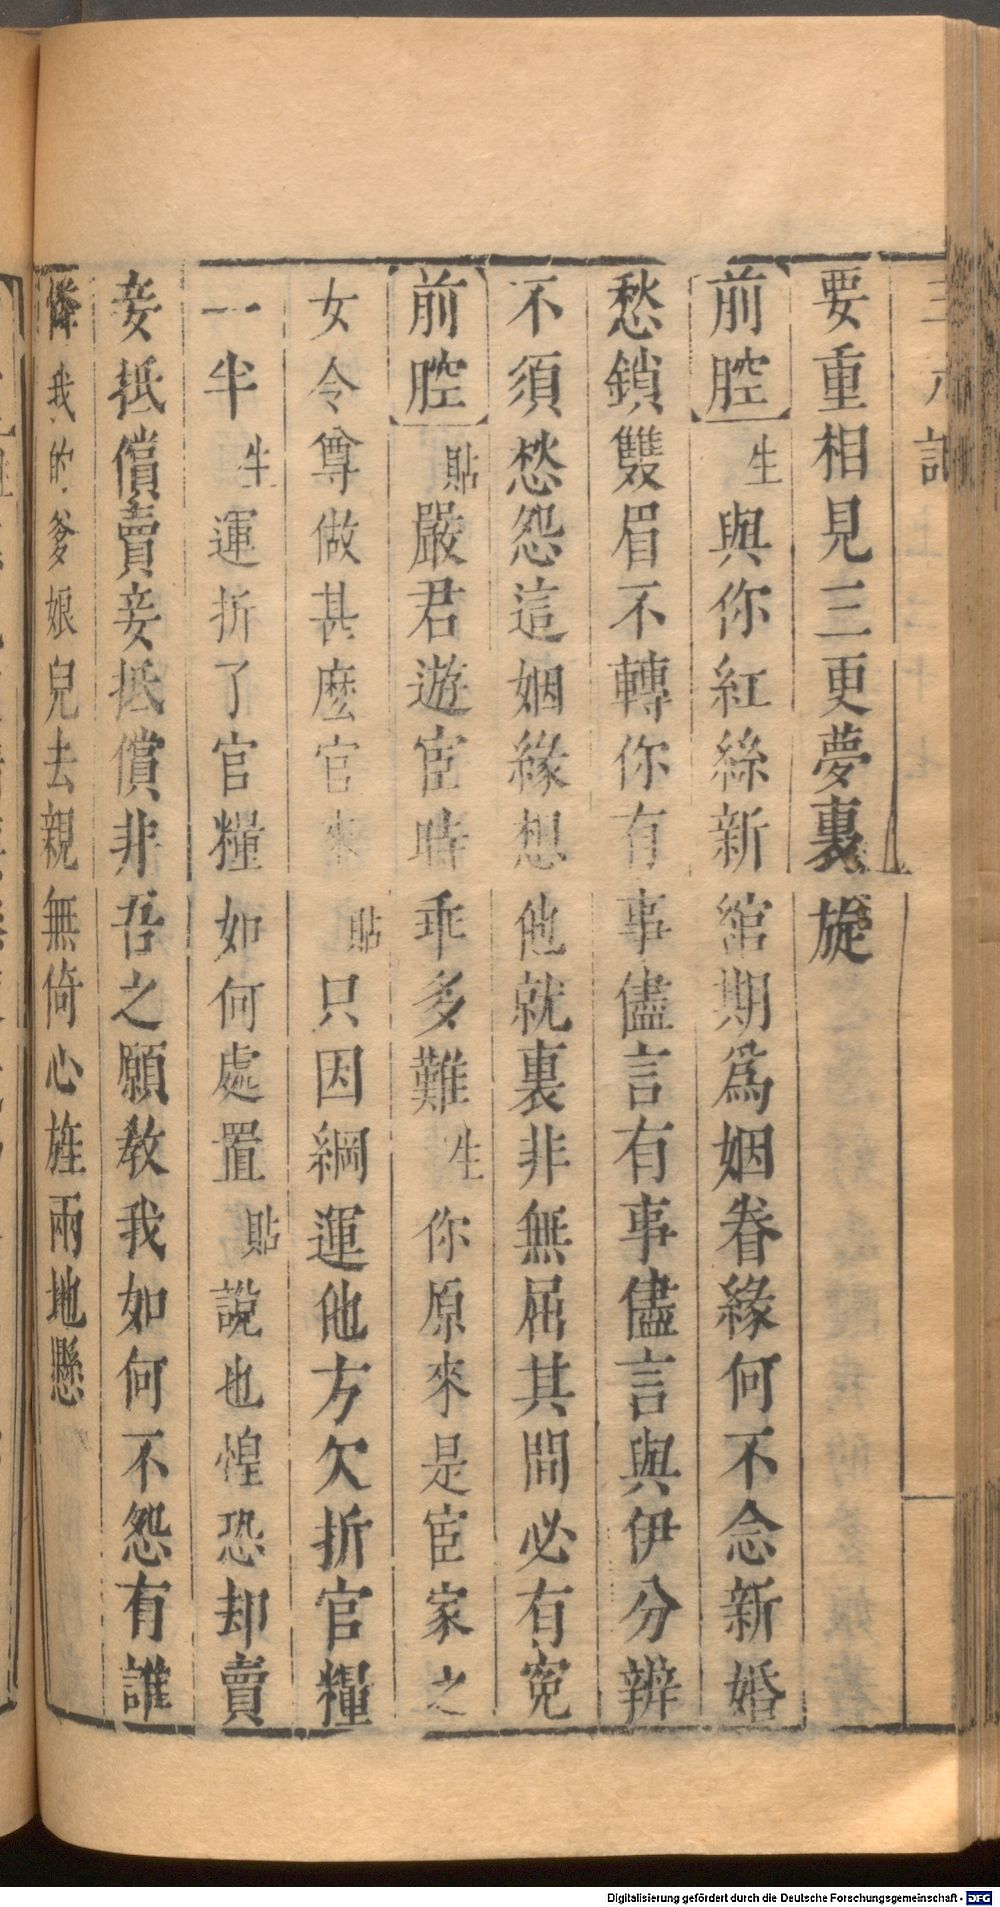 要重相見三更夢裏旋
前腔 生 與你紅絲新綰期爲姻眷緣何不念新婚
愁鎖雙眉不轉你有事儘言有事儘言與伊分辨
不須愁怨這姻緣想他就裏非無屈其間必有寃
前腔 貼 嚴君遊宦時乖多難 生 你原來是宦家之
女令尊做甚麽官來 貼 只因綱運他方欠折官糧
一半 生 運折了官糧如何處置 貼 說也惶恐却賣
妾抵償賣妾抵償非吾之願教我如何不怨有誰
憐我的爹娘兒去親無倚心旌兩地懸
Digitalisierung gefördert durch die Deutsche Forschungsgemeinschaft - DFG